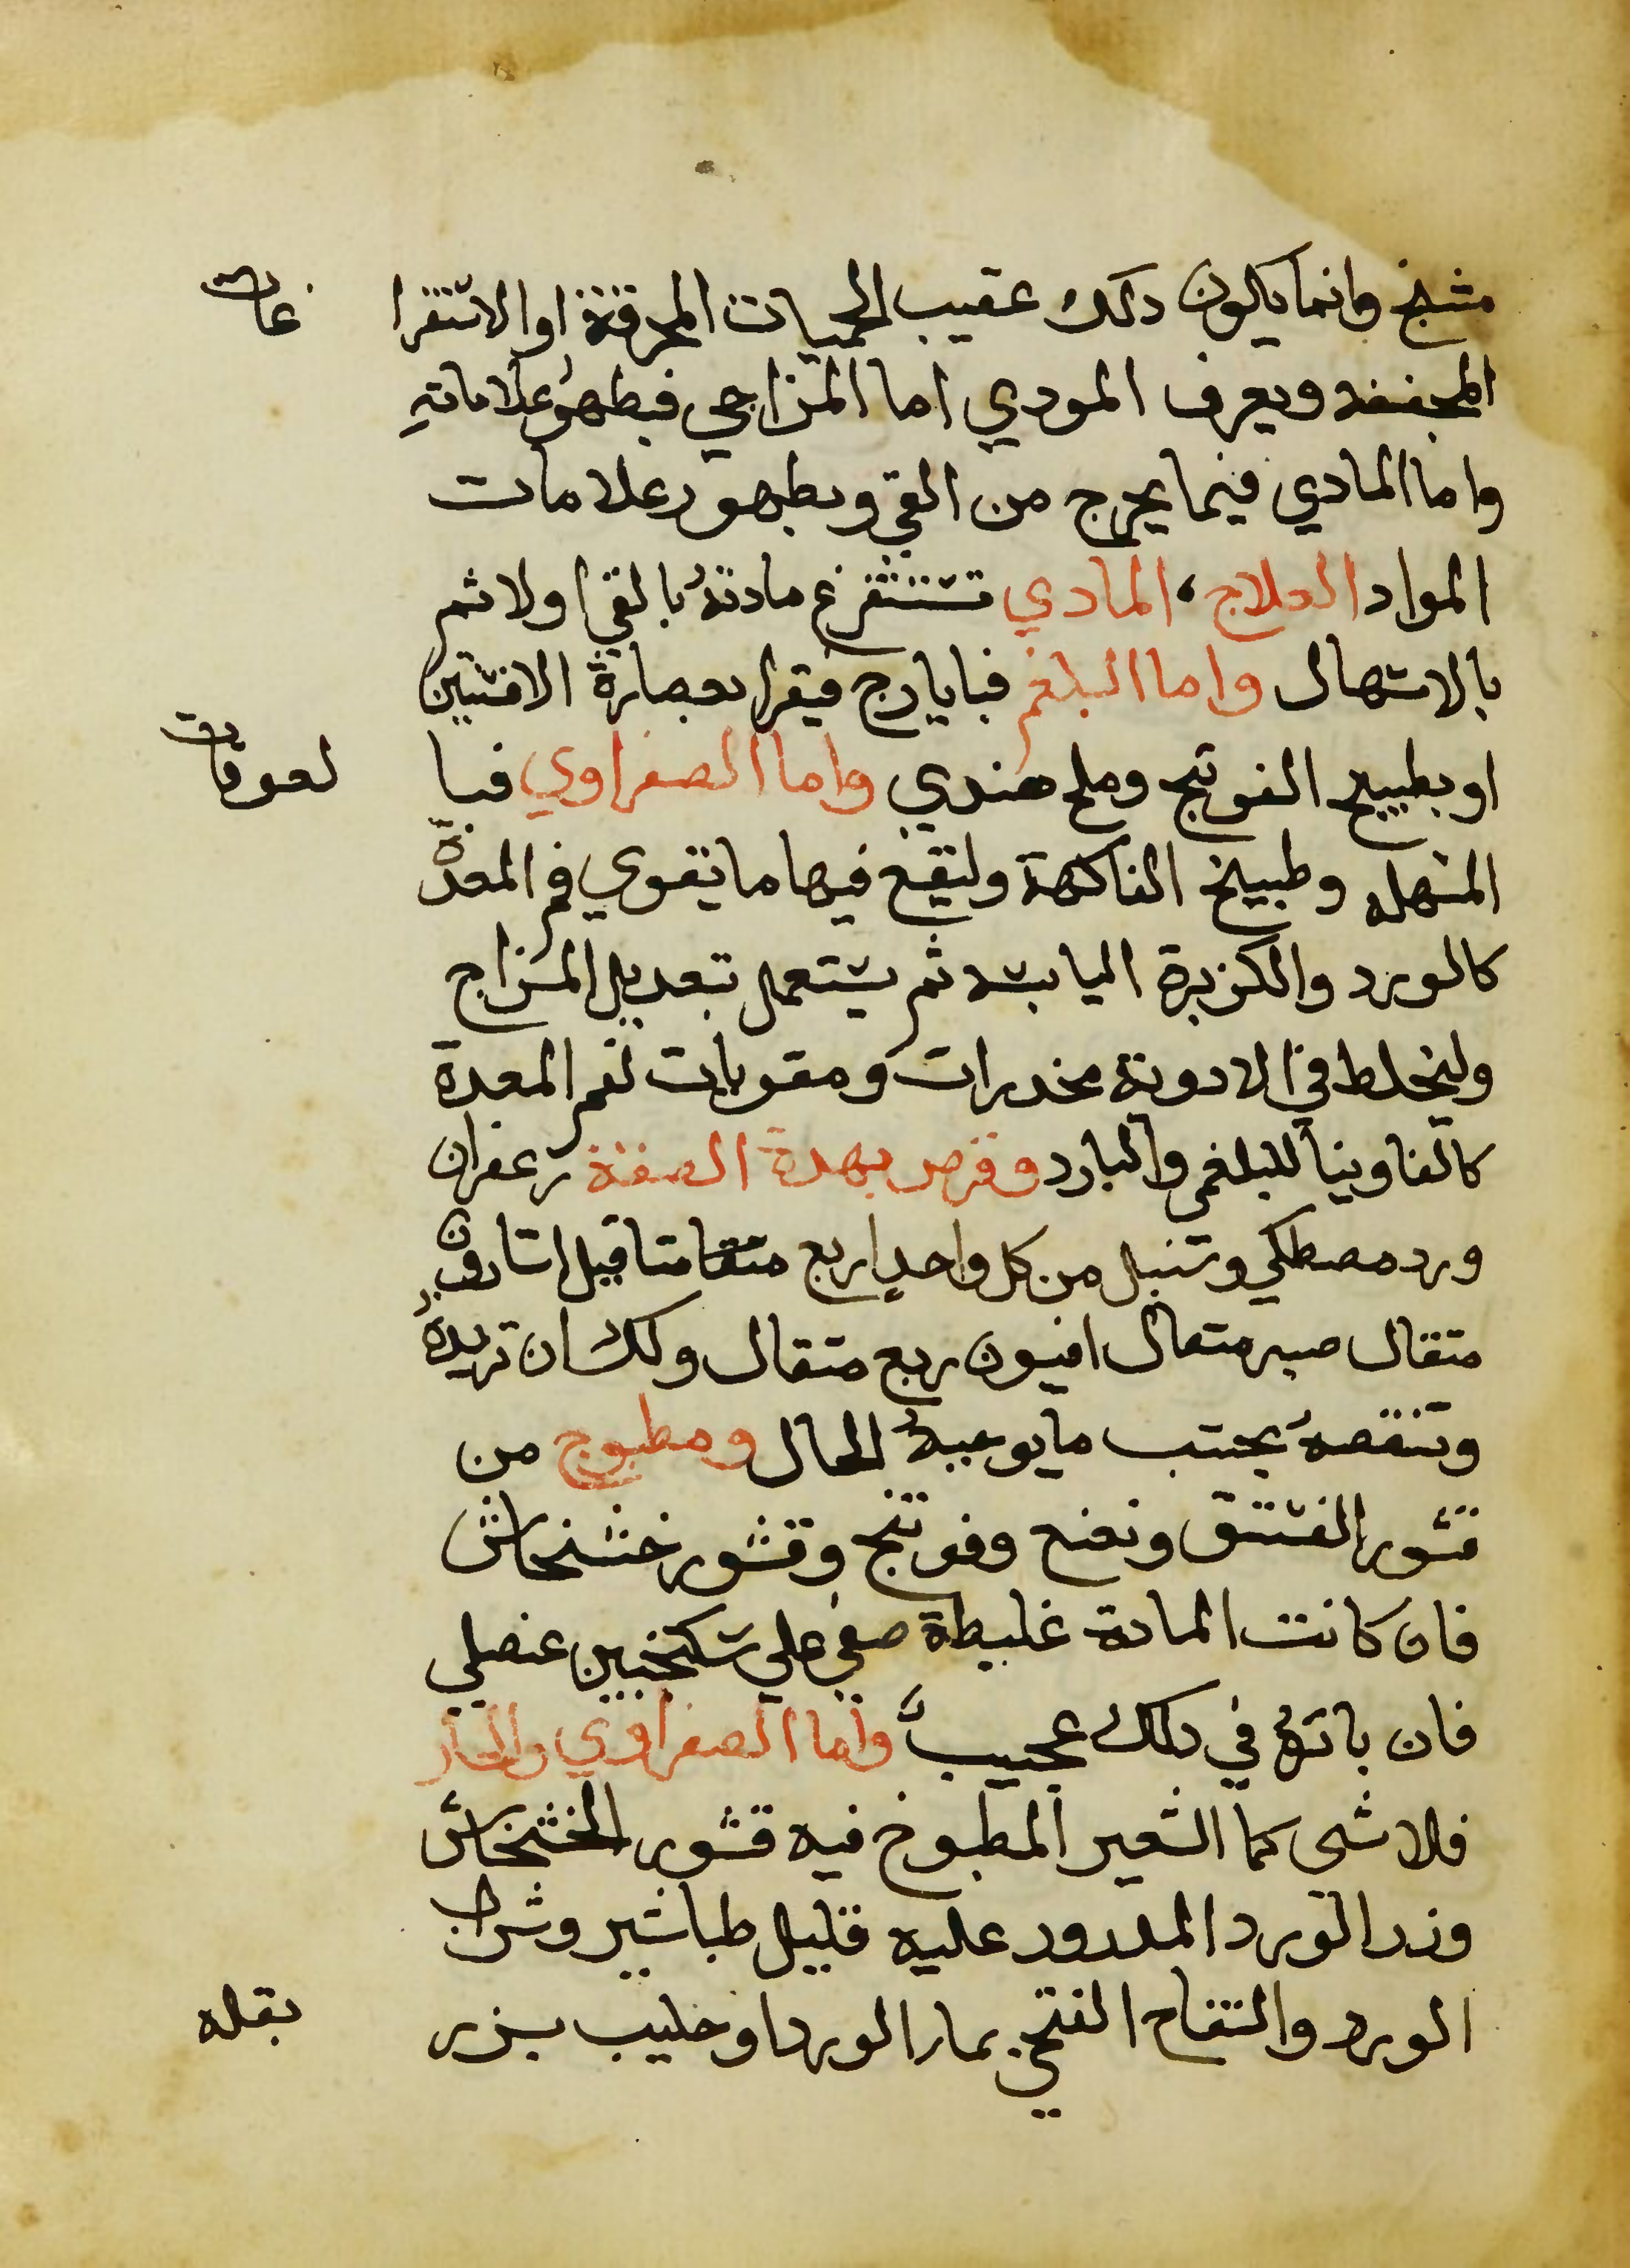 مشنج وانما يكون دلك عقيب الحميات المحرقة او الاستفرا غات
المجففه ويعرف المودي اما المزاجي فبظهور علاماته
واما المادي فيما يخرج من القي وبظهور علامات
المواد العلاج، المادي تستفرغ مادته بالقي اولا ثم
بالاستهال واما البلغم فبايارج فيقرا بعصارة الافسنتين
او بطبيخ الفوتنج وملح هندي واما الصفراوي فبا لعوقات
المسهله وطبيخ الفاكهة وليقع فيها ما يقوي فم المعدة
كالورد والكزبرة اليابسه ثم يستعمل تعديل المزاج
وليخلط في الادوية مخدرات ومقويات لفم المعدة
كالفاوينا للبلغمي والبارد وقرص بهدة الصفة زعفران
ورد مصطكي وسنبل من كل واحد اربع متقا مثاقيل اسارون
متقال صبر متقال افيون ربع متقال ولك ان تزيدة
وتنقصه بحسب ما يوجبه الحال ومطبوخ من
قشور الفستق ونعنع وفوتنج وقشور خشخاش
فان كانت المادة غليظة صفي علي سكنجبين عنصلي
فان باتره في دلك عجيبا واما الصفراوي والحار
فلا شي كما الشعير المطبوخ فيه قشور الخشخاش
وزر الورد المدرور عليه قليل طباشير وشراب
الورد والتفاح الفتحي بمار الورد او حليب بزر بقله